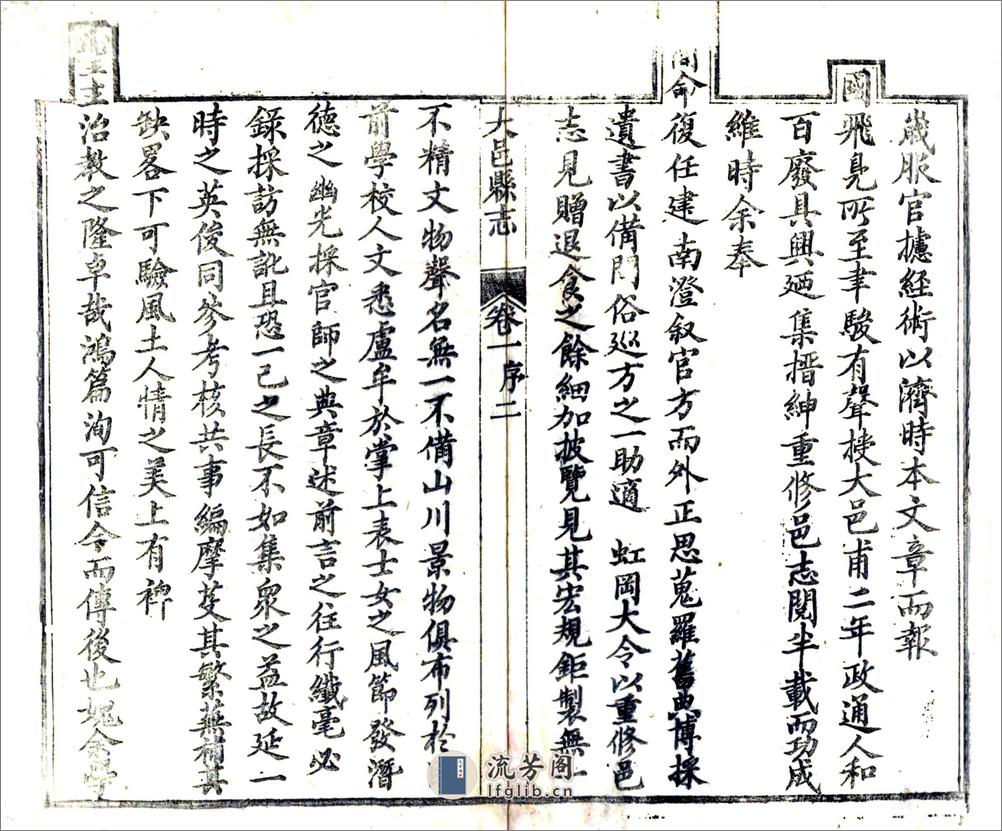 歲服官據經術以濟時本文章而報
國飛舄所至聿駿有聲授大邑甫二年政通人和
百廢具興廼集搢紳重修邑志閱半載而功成
維時余奉
簡命復任建南澄敘官方而外正思蒐羅舊典博採
遺書以備問俗巡方之一助適 虹岡大令以重修邑
志見贈退食之餘細加披覽見其宏規鉅製無一
大邑縣志 卷一序 二
不精文物聲名無一不備山川景物俱布列於
前學校人文悉盧牟於掌上表士女之風節發潛
德之幽光採官師之典章述前言之往行纖毫必
錄採訪無訛且恐一己之長不如集眾之益故延一
時之英俊同參考核共事編摩芟其繁蕪補其
缺畧下可驗風土人情之美上有裨
聖主治教之隆卓哉鴻篇洵可信今而傳後也媿余學
流芳阁
lfglib.cn